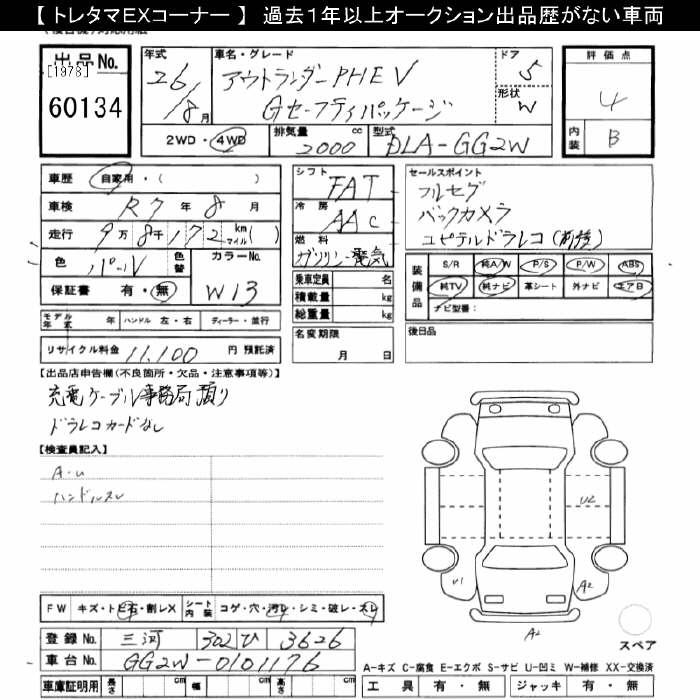 【 トレタマEXコーナー 】 過去1年以上オークション出品歴がない車両
出品No.
[1978]
60134
年式
26/8月
車名・グレード
アウトランダーPHEV
Gセーフティパッケージ
ドア
5
形状
W
評価点
4
内装
B
2WD・4WD
排気量
2000cc
型式
DLA-GG2W
車歴 自家用・( )
車検 R7年8月
走行 9万8千172 km マイル( )
色 パール 色替
カラーNo.
W13
保証書 有・無
モデル年式 年 ハンドル 左・右 ディーラー・並行
リサイクル料金 11,100 円 預託済
シフト
FAT
冷房
AAC
燃料
ガソリン電気
乗車定員 名
積載量 kg
総重量 kg
名変期限
月 日
セールスポイント
フルセグ
バックカメラ
ユピテルドラレコ(前後)
装備品
S/R 純A/W P/S P/W ABS
純TV 純ナビ 革シート 外ナビ エアB
ナビ型番:
後日品
【出品店申告欄(不良箇所・欠品・注意事項等)】
充電ケーブル事務局預り
ドラレコカードなし
【検査員記入】
A・U
ハンドルスレ
U2
U1
A2
A2
スペア
FW キズ・トビ石・割レX シート内装 コゲ・穴・汚レ・シミ・破レ・スレ
登録No. 三河 302 ひ 3626
車台No. GG2W-0101176
車庫証明用 長さ cm 幅 cm 高さ cm
A-キズ C-腐食 E-エクボ S-サビ U-凹ミ W-補修 XX-交換済
工具 有・無 ジャッキ 有・無